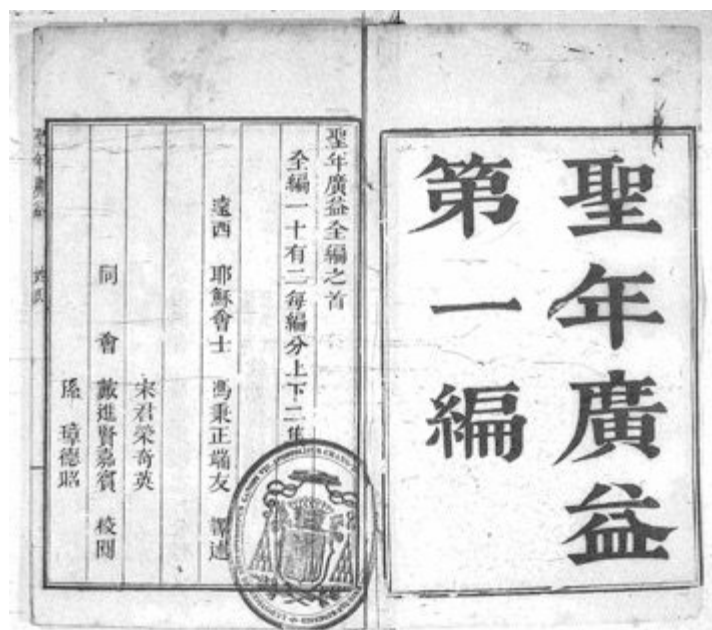 聖年廣益
第一編
聖年廣益全編之首
全編一十有二每編分上下二集
遠西 耶穌會士 馮秉正端友 譯述
宋君榮奇英
同 會 戴進賢嘉賓 校閱
孫 璋德昭
聖年廣益